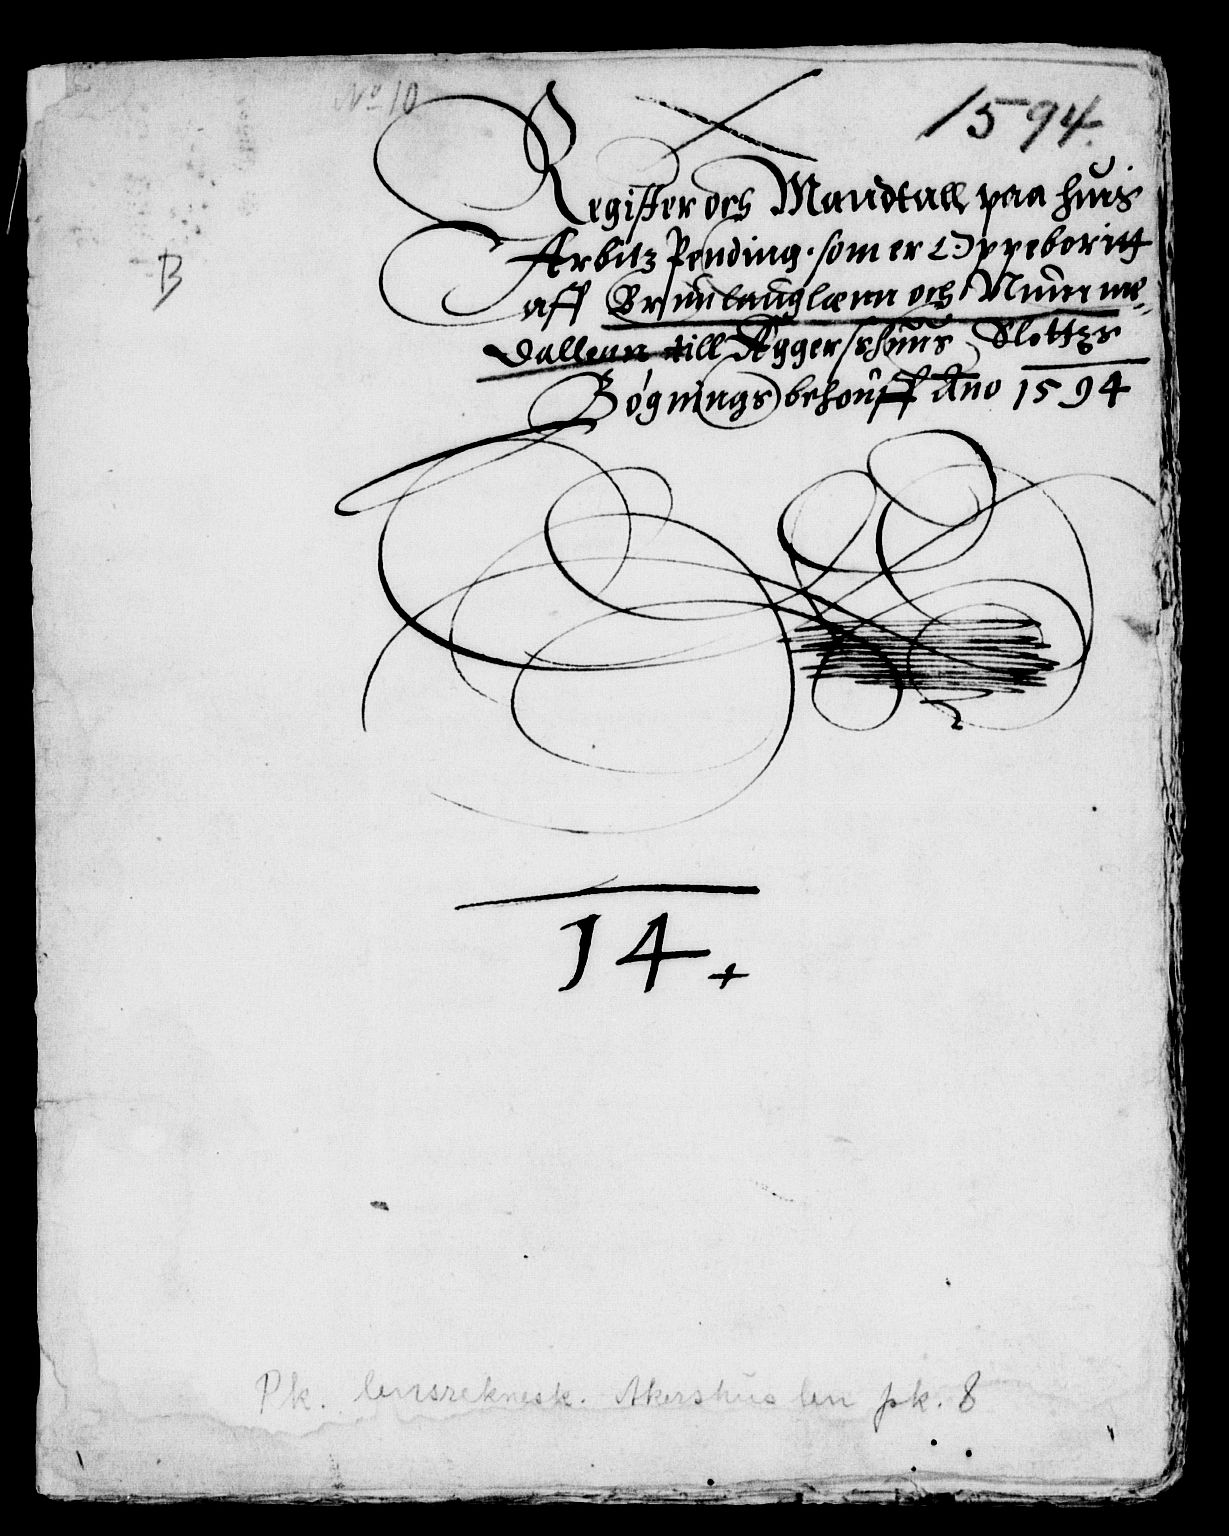 No 10
1594.
Register och Mandtall paa huis
Arbitz Pending som er Oppeboritt
aff Brunlauglænn och Numme-
dallenn till Aggershuus Slottzs
Bógnings behouff Ano 1594
B
14
Pk. lensreknesk. Akershus len pk. 8